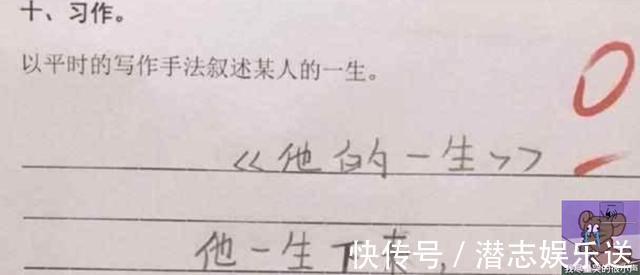 十、习作。
以平时的写作手法叙述某人的一生。
0
《他的一生》
他一生下
快传号／潜志娱乐送